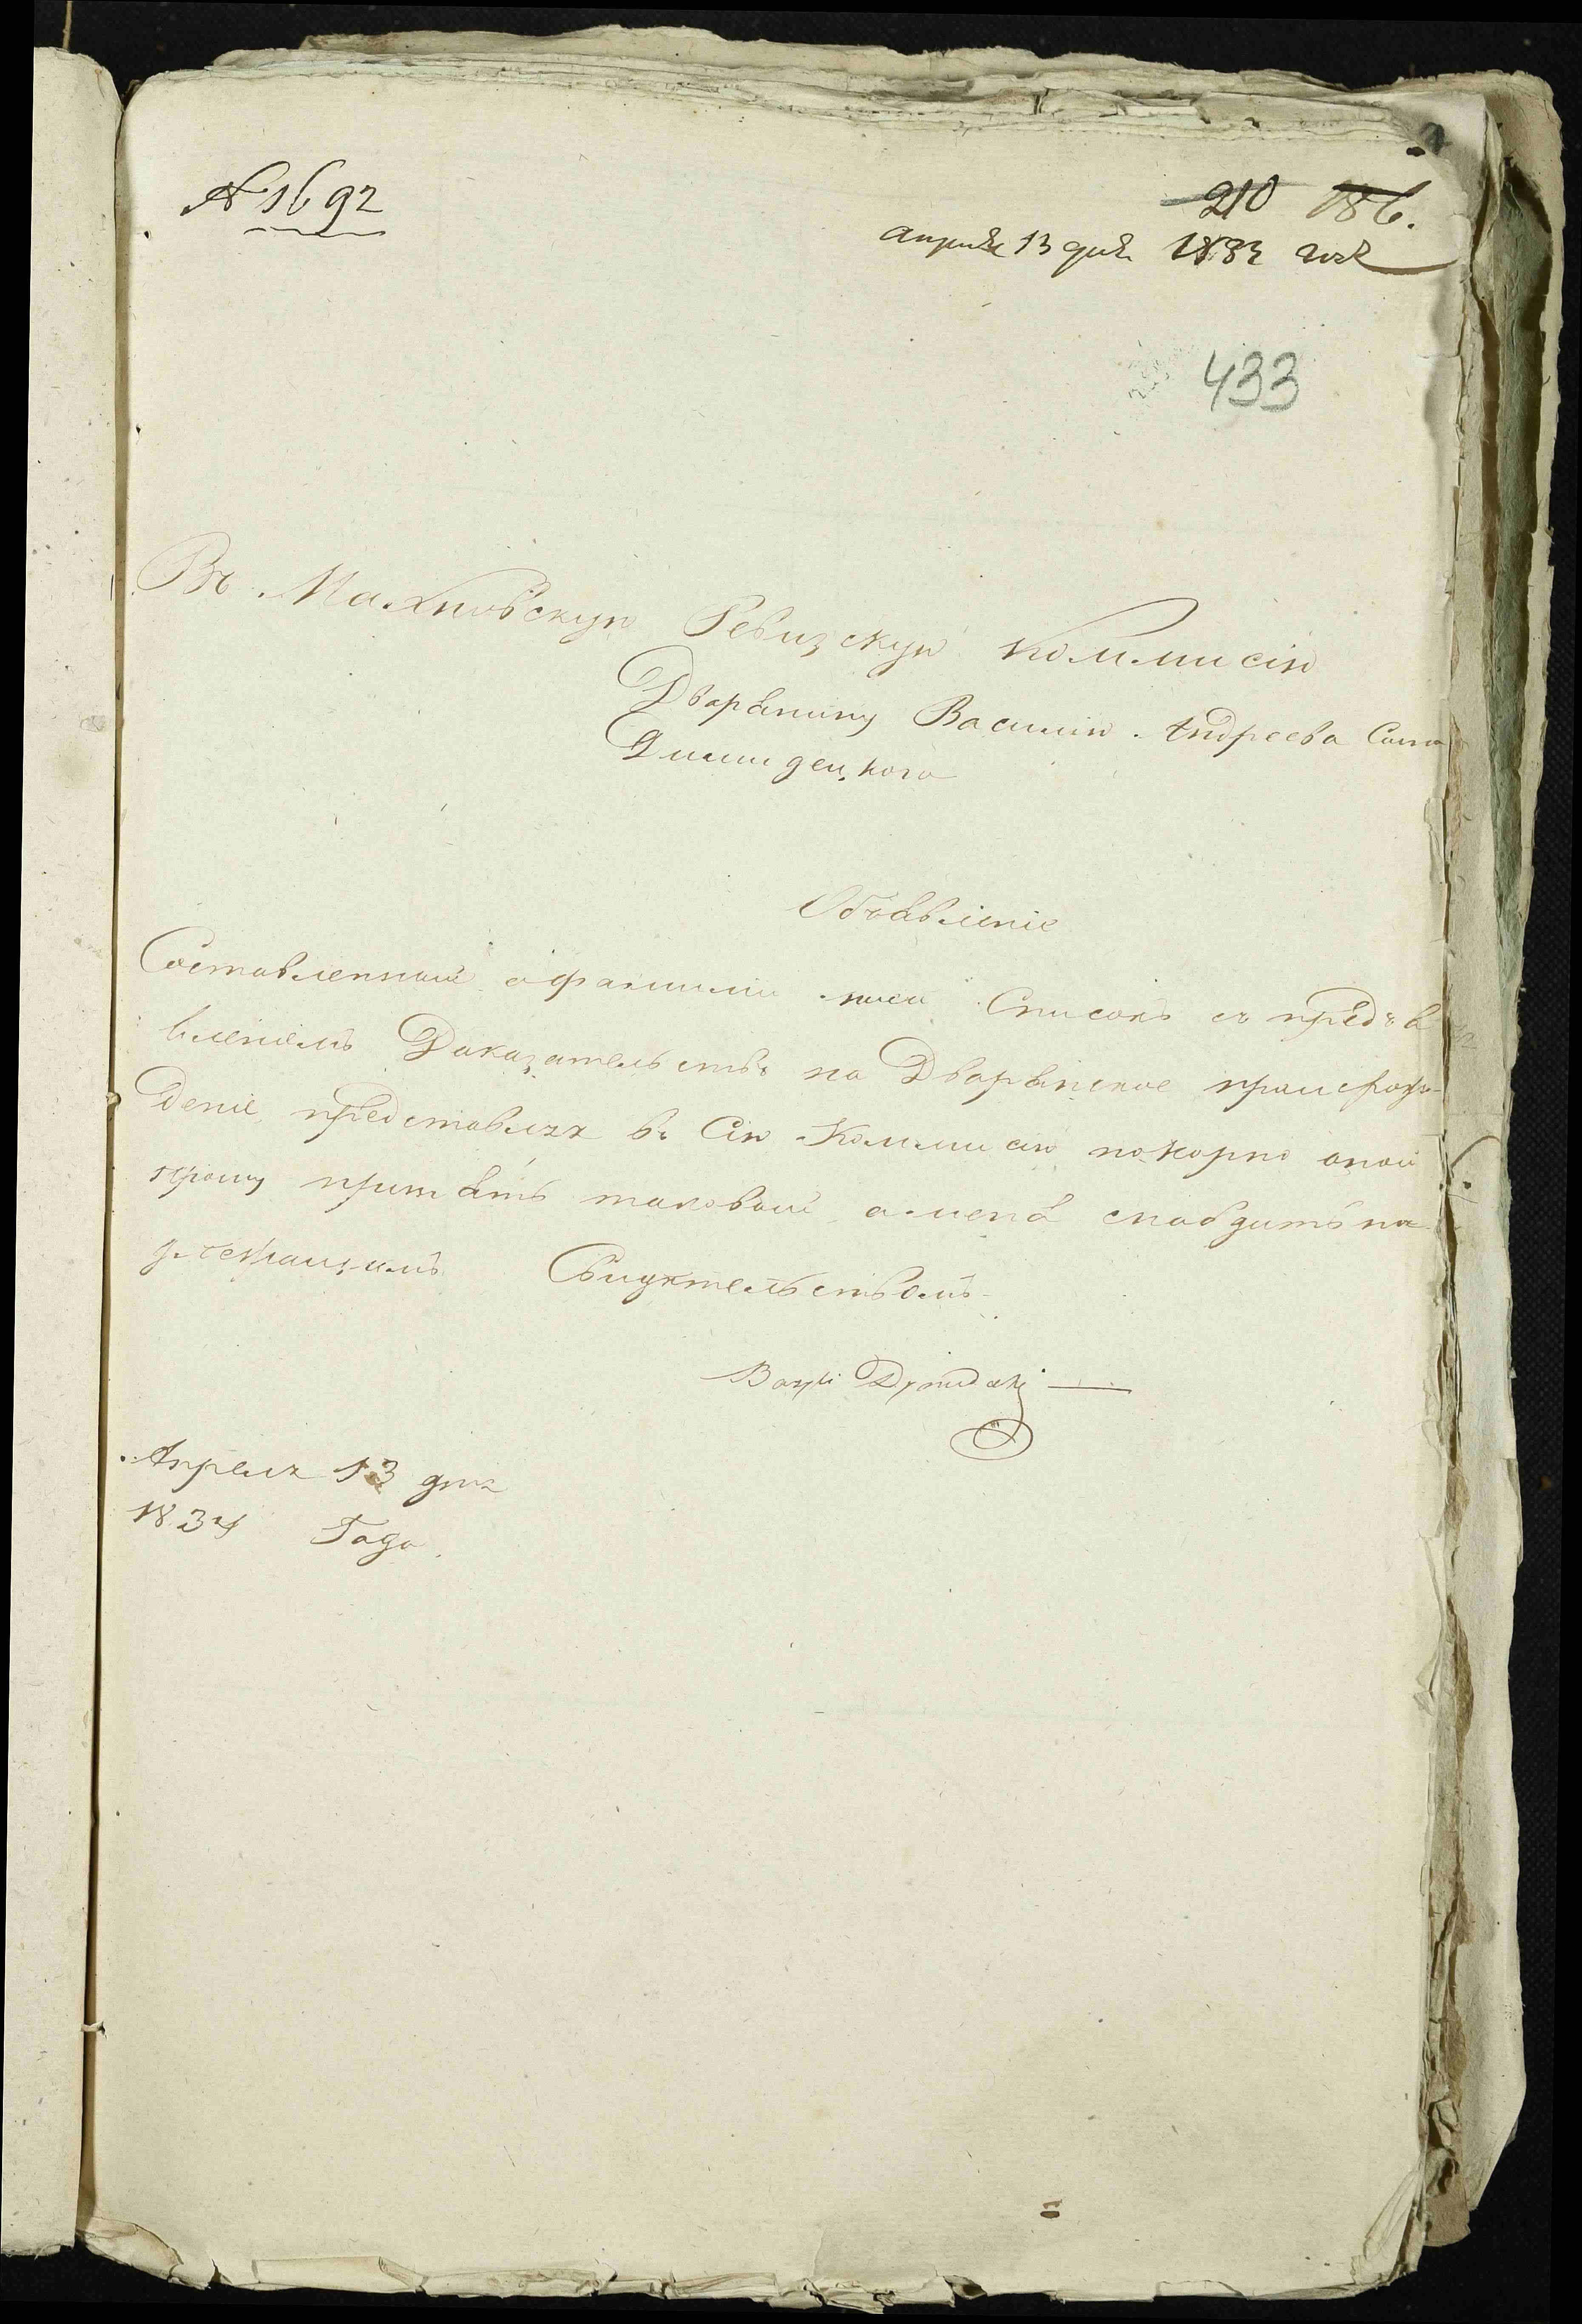 № 1692
210 186.
апреля 13 дня 1834 года
433
Въ Махновскую Ревизскую Коммисію
Дворянину Василию Андреева Сына
Димидецкого
Объявленіе
Составленный о фамилии моей Список съ предъя
вленіемъ Доказательствъ на Дворянское происхож-
деніе представляя въ Сію Коммисію покорно оной
прошу принять таковый, а меня снабдить на
длежащимъ Свидетельствомъ
Апреля 13 дня
1834 Года